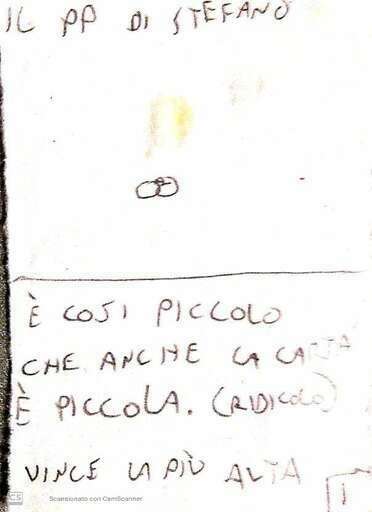 IL PP DI STEFANO
È COSI PICCOLO
CHE ANCHE LA CARTA
È PICCOLA. (RIDICOLO)
VINCE LA PIÙ ALTA
CS Scansionato con CamScanner